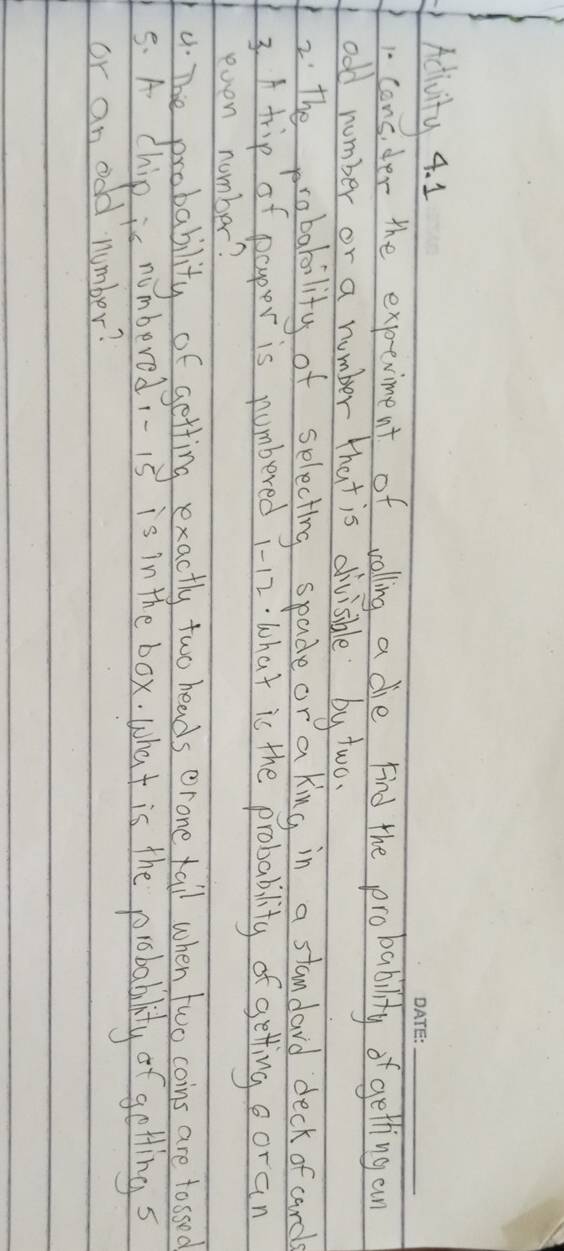 DATE:
Activity 4.1
1. Consider the experiment of rolling a die Find the probability of getting an
odd number or a number that is divisible by two.
2. The probability of selecting spade or a king in a standard deck of cards
3. A trip of paper is numbered 1-12. What is the probability of getting 6 or an
even number?
4. The probability of getting exactly two heads or one tail when two coins are tossed
5. A chip is numbered 1-15 is in the box. What is the probability of getting 5
or an odd number?